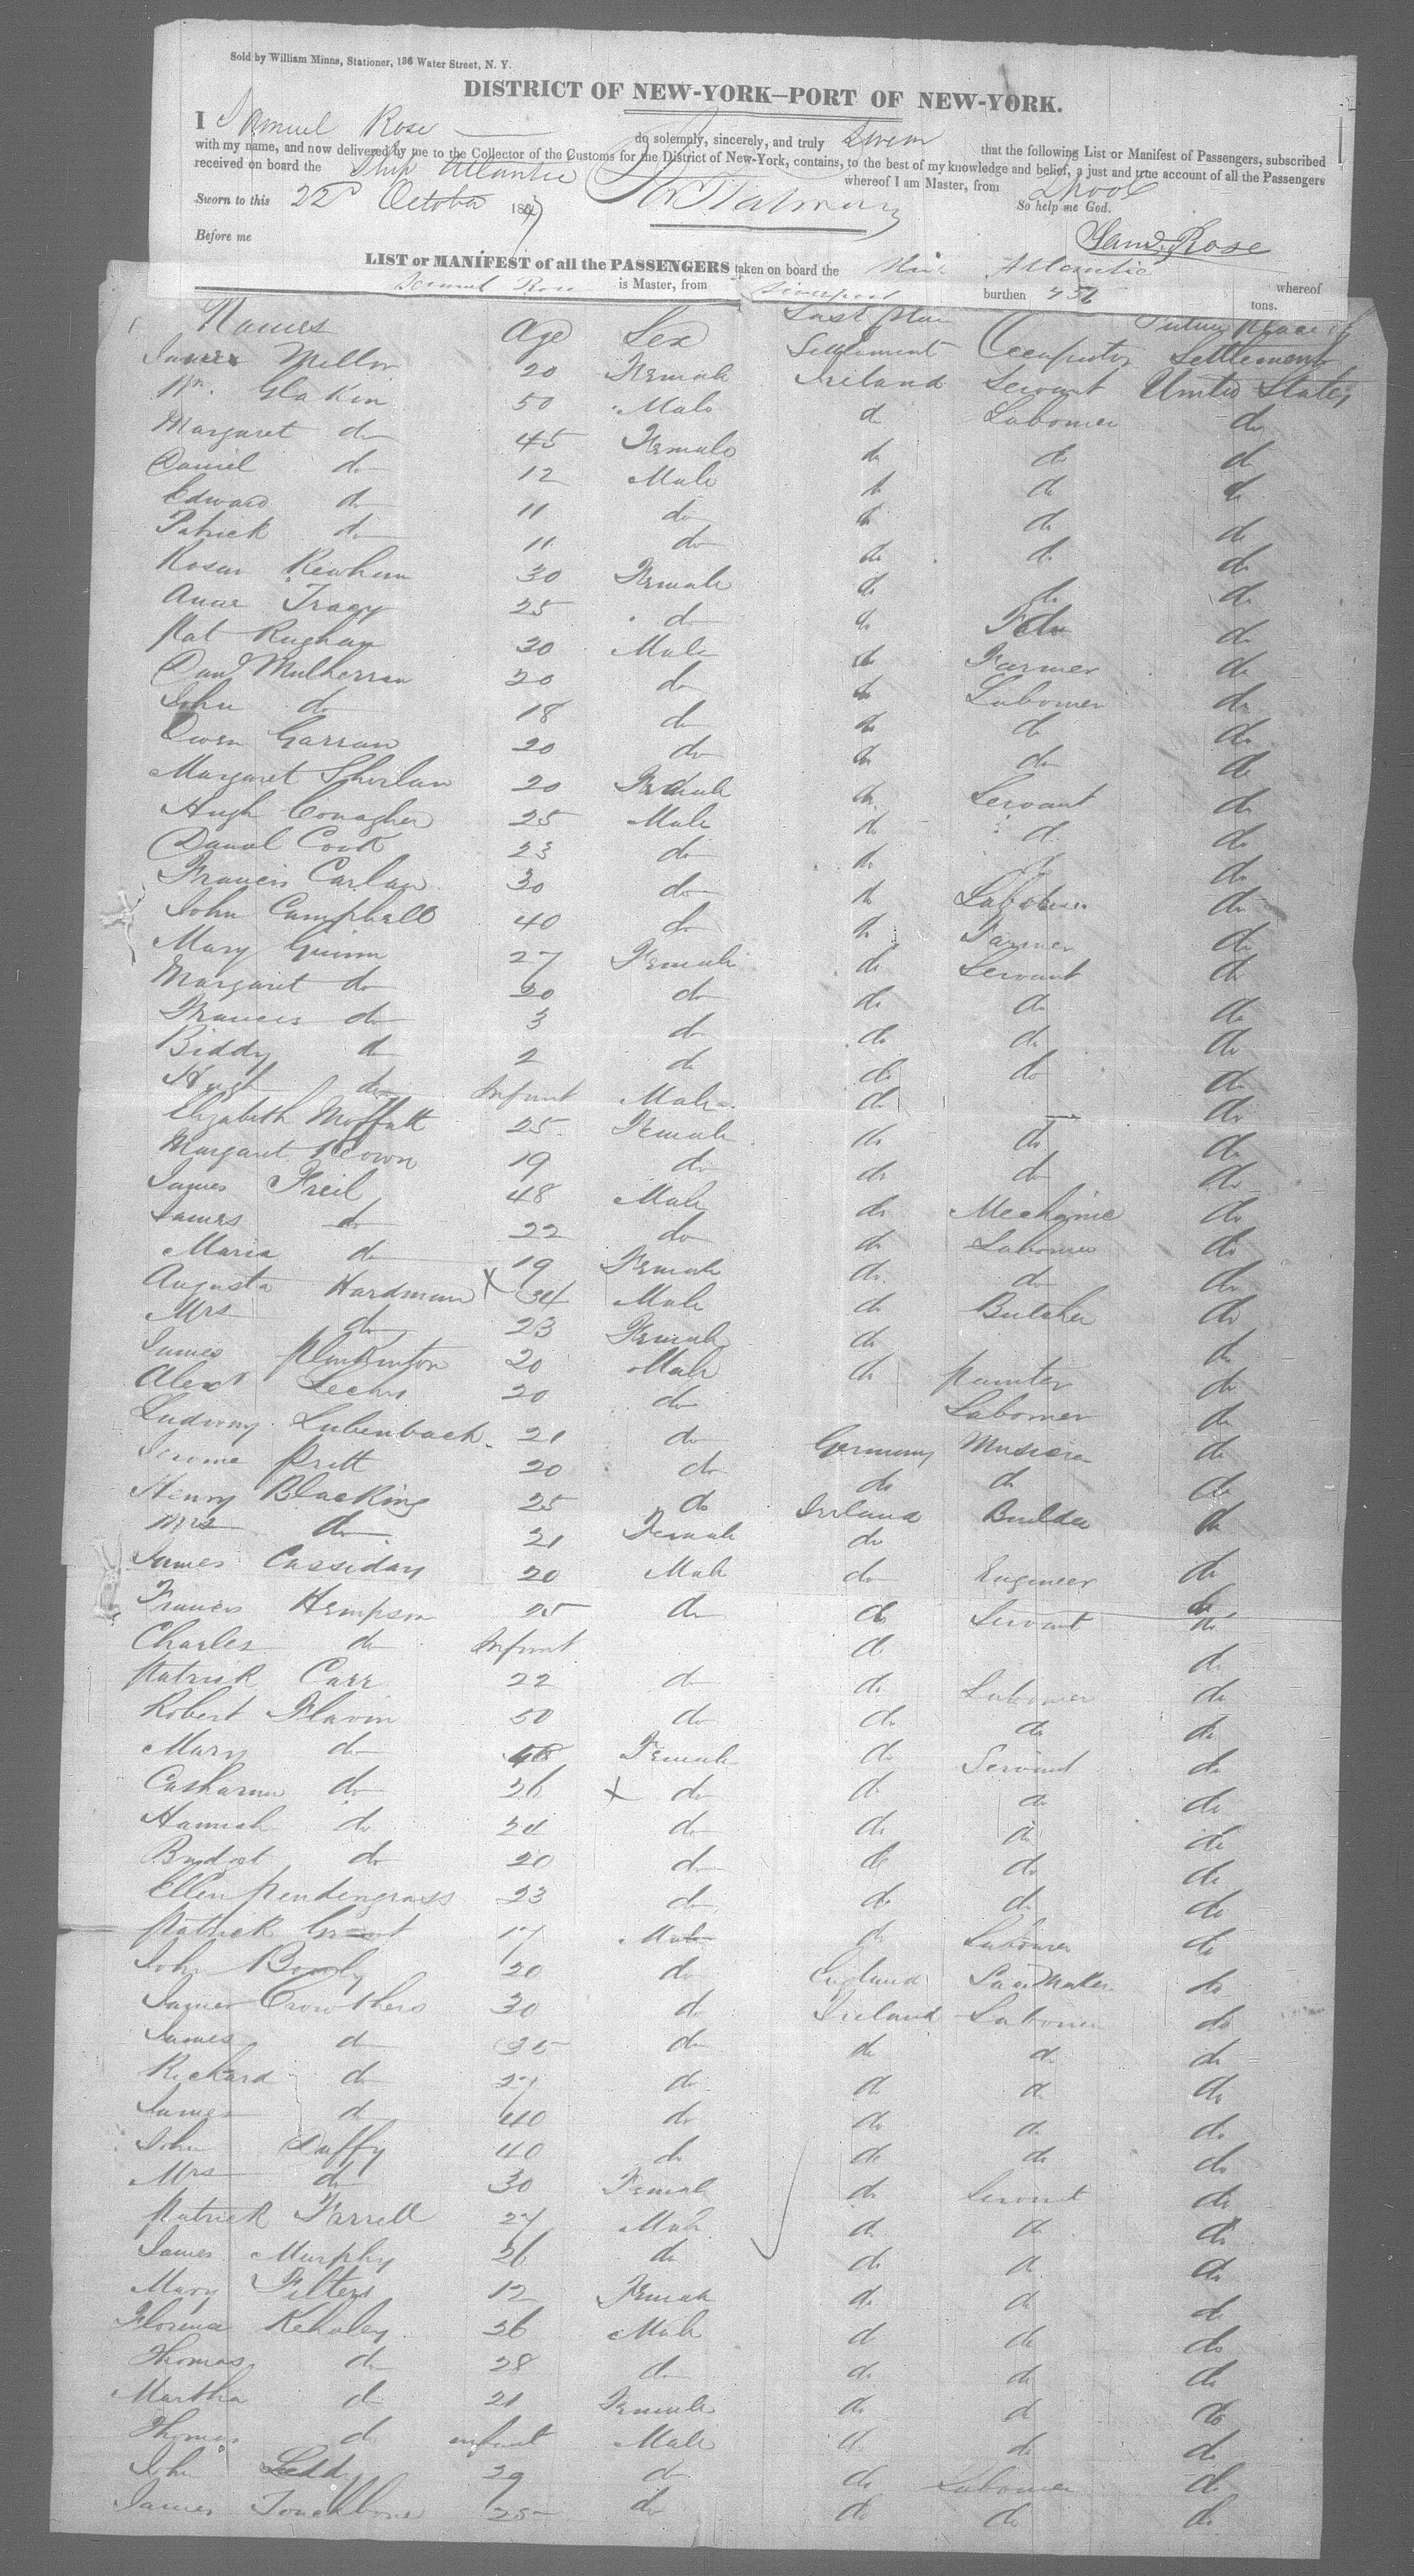 Sold by William Minns, Stationer, 136 Water Street, N. Y.
DISTRICT OF NEW-YORK—PORT OF NEW-YORK.
I Samuel Rose do solemnly, sincerely, and truly Swear that the following List or Manifest of Passengers, subscribed
with my name, and now delivered by me to the Collector of the Customs for the District of New-York, contains, to the best of my knowledge and belief, a just and true account of all the Passengers
received on board the Ship Atlantic whereof I am Master, from Lpool
Sworn to this 22 October 184 So help me God.
Before me Saml. Rose
LIST or MANIFEST of all the PASSENGERS taken on board the Ship Atlantic whereof
Samuel Rose is Master, from Liverpool burthen tons.
Names Age Sex Last place Settlement Occupation Future place of Settlement
20 Female Ireland Servant United States
Wm. Glakin 50 Male do Labourer do
Margaret do 45 Female do do do
Daniel do 12 Male do do do
Edward do 11 do do do do
Patrick do 11 do do do do
30 Female do do do
Anne Tracy 25 do do do do
Pat 30 Male do Farmer do
Danl Mulherran 20 do do Labourer do
John do 18 do do do do
Owen Garran 20 do do do do
Margaret Sheridan 20 Female do Servant do
Hugh Conagher 25 Male do do do
Daniel Cook 23 do do do
Francis Carlan 30 do do Labourer do
John Campbell 40 do do Farmer do
Mary Guinn 27 Female do Servant do
Margaret do 20 do do do do
Frances do 3 do do do do
Biddy do 2 do do do do
Hugh do Infant Male do — do
Elizabeth Moffatt 25 Female do do do
Margaret 19 do do do do
James Freil 48 Male do Mechanic do
James do 22 do do Labourer do
Maria do 19 Female do do do
Augusta Hardman X 34 Male do Butcher do
Mrs do 23 Female do do
James Plunkinton 20 Male do Painter do
Alexr 20 do Labourer do
Ludwig Lubenbach 21 do Germany Musician do
Pritt 20 do do do do
Henry Blacking 25 do Ireland Builder do
Mrs do 21 Female do
James Cassiday 20 Male do Engineer do
Francis Hempson 25 do do Servant do
Charles do Infant do do
Patrick Carr 22 do do Labourer do
Robert Flavin 50 do do do do
Mary do 48 Female do Servant do
Catharine do 26 X do do do do
Hannah do 21 do do do do
Bridget do 20 do do do do
Ellen Pendengrass 23 do do do do
Patrick 17 Male do Labourer do
John 20 do England do
James Crowthers 30 do Ireland Labourer do
James do 35 do do do do
Richard do 27 do do do do
James do 40 do do do do
John Duffy 40 do do do do
Mrs do 30 Female do Servant do
Patrick Farrell 27 Male do do do
James Murphy 26 do do do do
Mary Filters 12 Female do do do
Florence Kehaley 36 Male do do do
Thomas do 28 do do do do
Martha do 21 Female do do do
Thomas do infant Male do do do
John 29 do do Labourer do
James 25 do do do do